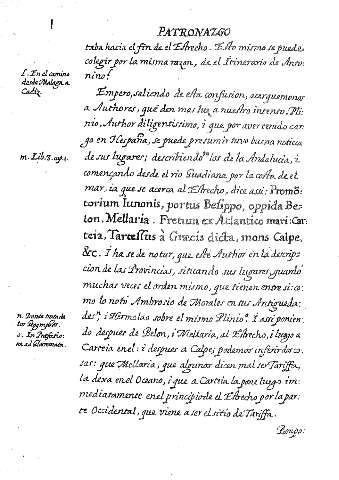 PATRONAZGO
taba hacia el fin de el Estrecho. Esto mismo se puede
colegir por la misma razon, de el Itinerario de Anto-
nino.
l. En el camino
desde Malaga a
Cadiz.
Empero, saliendo de esta confusion, acarquemonos
a Authores, què den mas luz a nuestro intento. Pli-
nio, Author diligentissimo, i que por aver tenido car-
go en Hespaña, se puede presumir tuvo buena noticia
m. Lib. 3. cap. 1.
de sus lugares; describiendo los de la Andalucia, i
comenzando desde el rio Guadiana por la costa de el
mar, ia que se acerca al Estrecho, dice assi: Promon-
torium Iunonis, portus Besippo, oppida Be-
lon, Mellaria. Fretum ex Atlantico mari: Car-
teia, Tartessus à Græcis dicta, mons Calpe,
&c. I ha se de notar, que este Author en la descrip-
cion de las Provincias, situando sus lugares, guardò
muchas veces el orden mismo, que tienen entre si: co-
mo lo notò Ambrosio de Morales en sus Antigueda-
des, i Hermolao sobre el mismo Plinio. I assi ponien-
do despues de Belon, i Mellaria, al Estrecho, i luego a
Carteia en el: i despues a Calpe; podemos inferir dos co-
sas: que Mellaria, que algunos dicen mal ser Tariffa,
la dexa en el Oceano, i que a Carteia la pone luego im-
mediatamente en el principio de el Estrecho por la par-
te Occidental, que viene a ser el sitio de Tariffa.
Pompo-